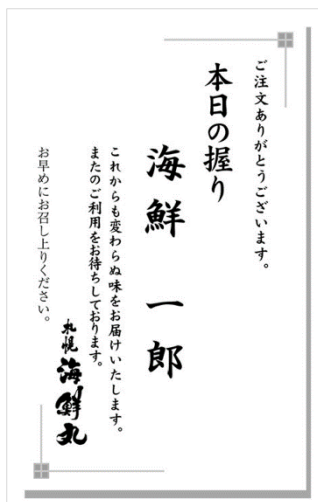 ご注文ありがとうございます。
本日の握り
海鮮 一郎
これからも変わらぬ味をお届けいたします。
またのご利用をお待ちしております。
札幌 海鮮丸
お早めにお召し上りください。